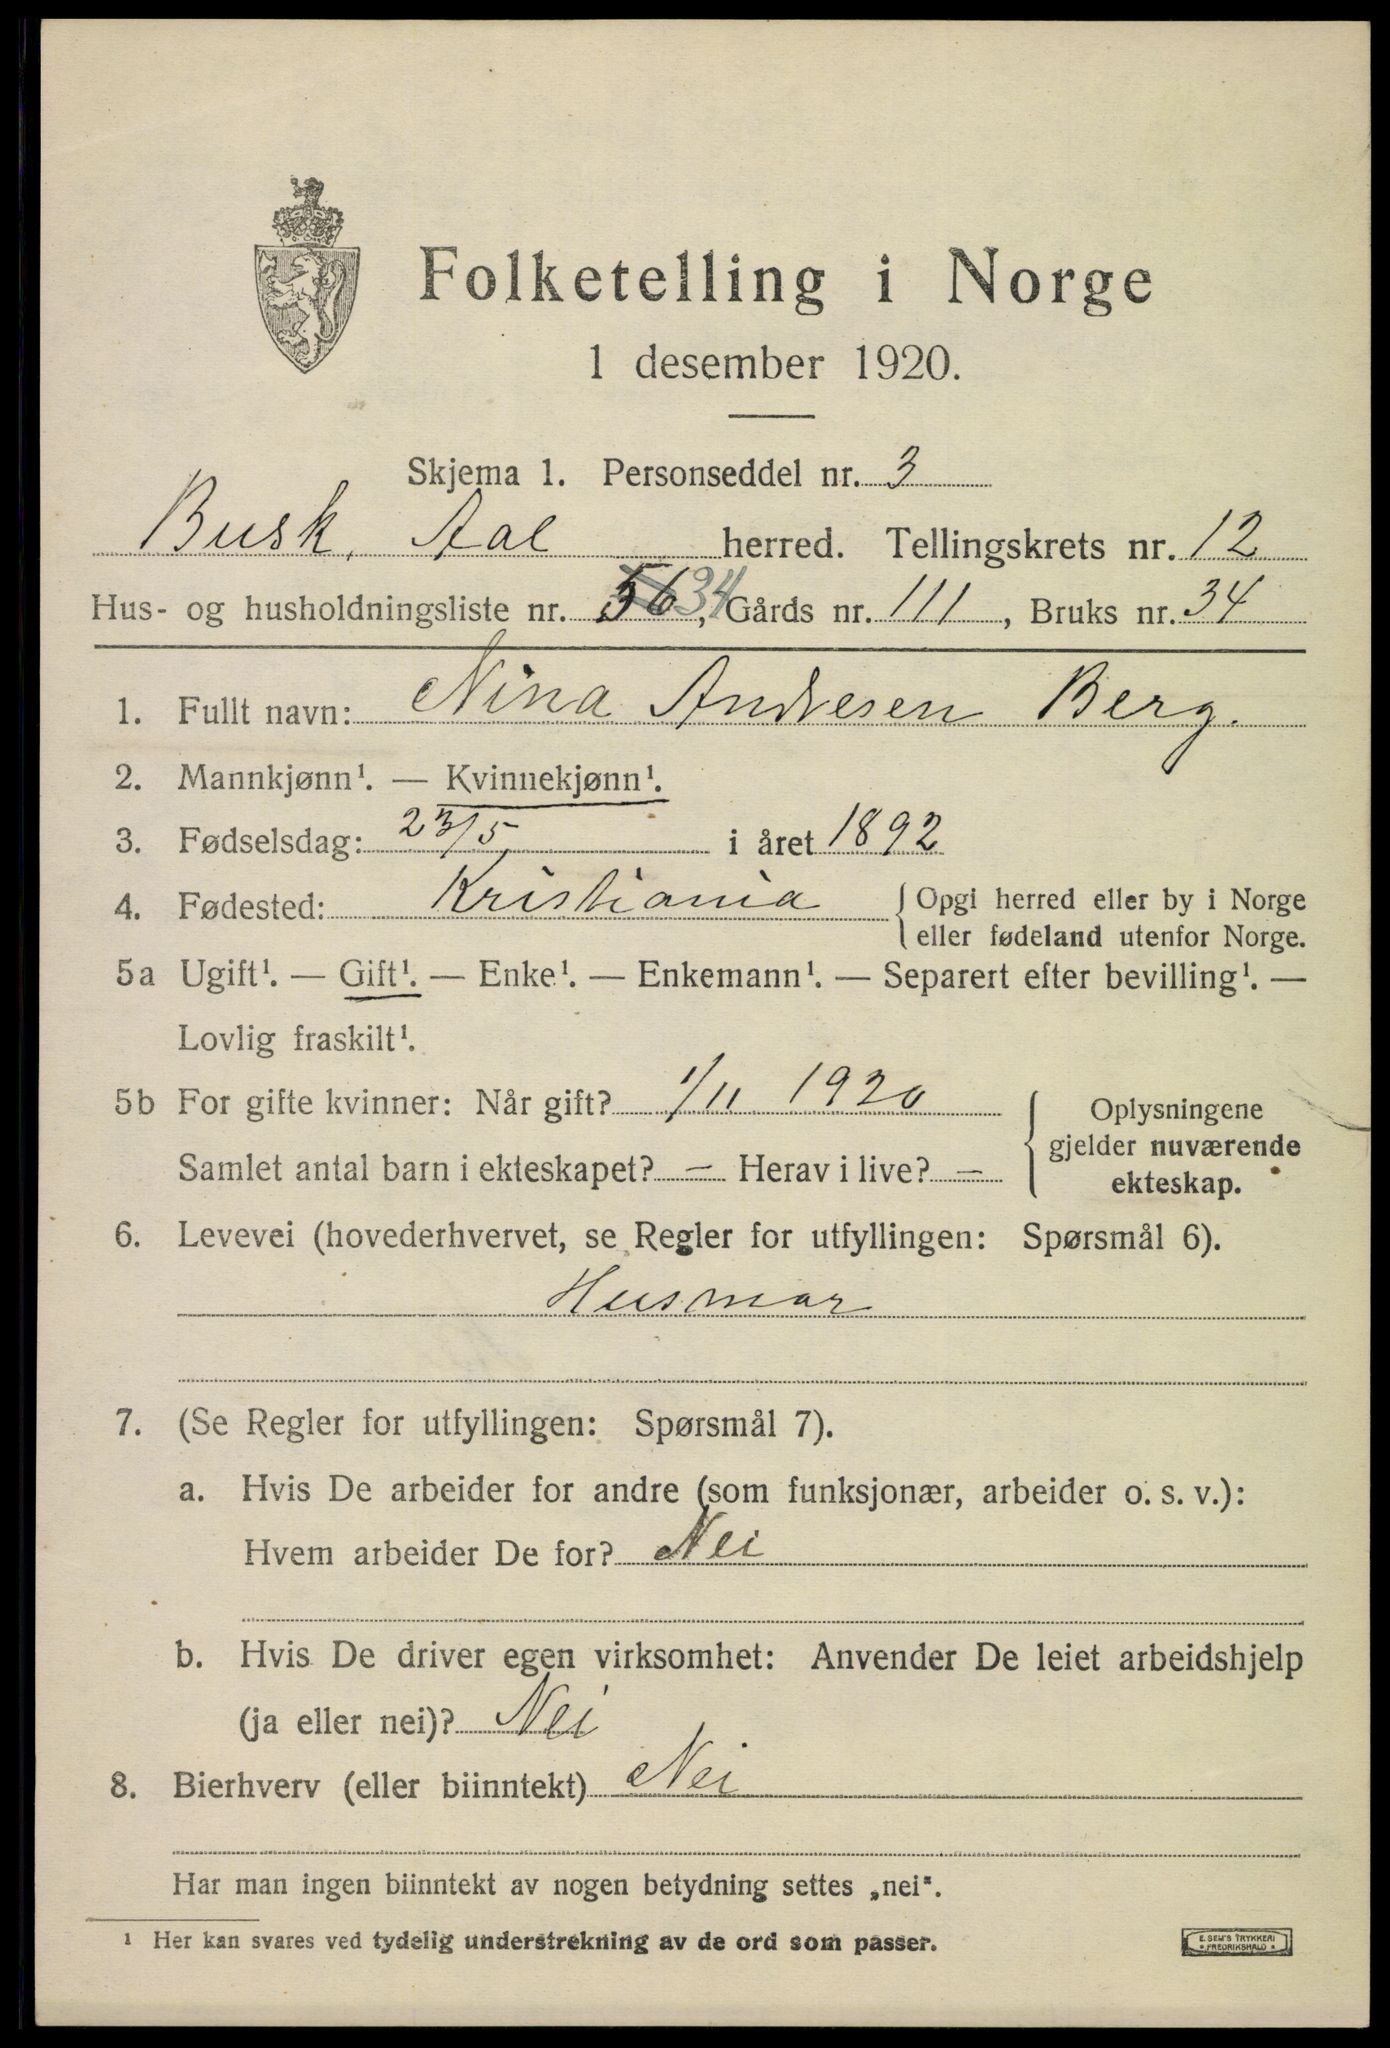 Folketelling i Norge
1 desember 1920.
Skjema 1. Personseddel nr. 3
Busk. Aal herred. Tellingskrets nr. 12
Hus- og husholdningsliste nr. 56 34, Gårds nr. 111, Bruks nr. 34
1. Fullt navn: Nina Andresen Berg.
2. Mannkjønn¹. — Kvinnekjønn¹.
3. Fødselsdag: 23/5 i året 1892
4. Fødested: Kristiania { Opgi herred eller by i Norge
eller fødeland utenfor Norge.
5a Ugift¹. — Gift¹. — Enke¹. — Enkemann¹. — Separert efter bevilling¹. —
Lovlig fraskilt¹.
5b For gifte kvinner: Når gift? 1/11 1920
Samlet antal barn i ekteskapet? — Herav i live? —
Oplysningene
gjelder nuværende
ekteskap.
6. Levevei (hovederhvervet, se Regler for utfyllingen: Spørsmål 6).
Husmor
7. (Se Regler for utfyllingen: Spørsmål 7).
a. Hvis De arbeider for andre (som funksjonær, arbeider o. s. v.):
Hvem arbeider De for? Nei
b. Hvis De driver egen virksomhet: Anvender De leiet arbeidshjelp
(ja eller nei)? Nei
8. Bierhverv (eller biinntekt) Nei
Har man ingen biinntekt av nogen betydning settes „nei".
¹ Her kan svares ved tydelig understrekning av de ord som passer.
E. SEM'S TRYKKERI
* FREDRIKSHALD *